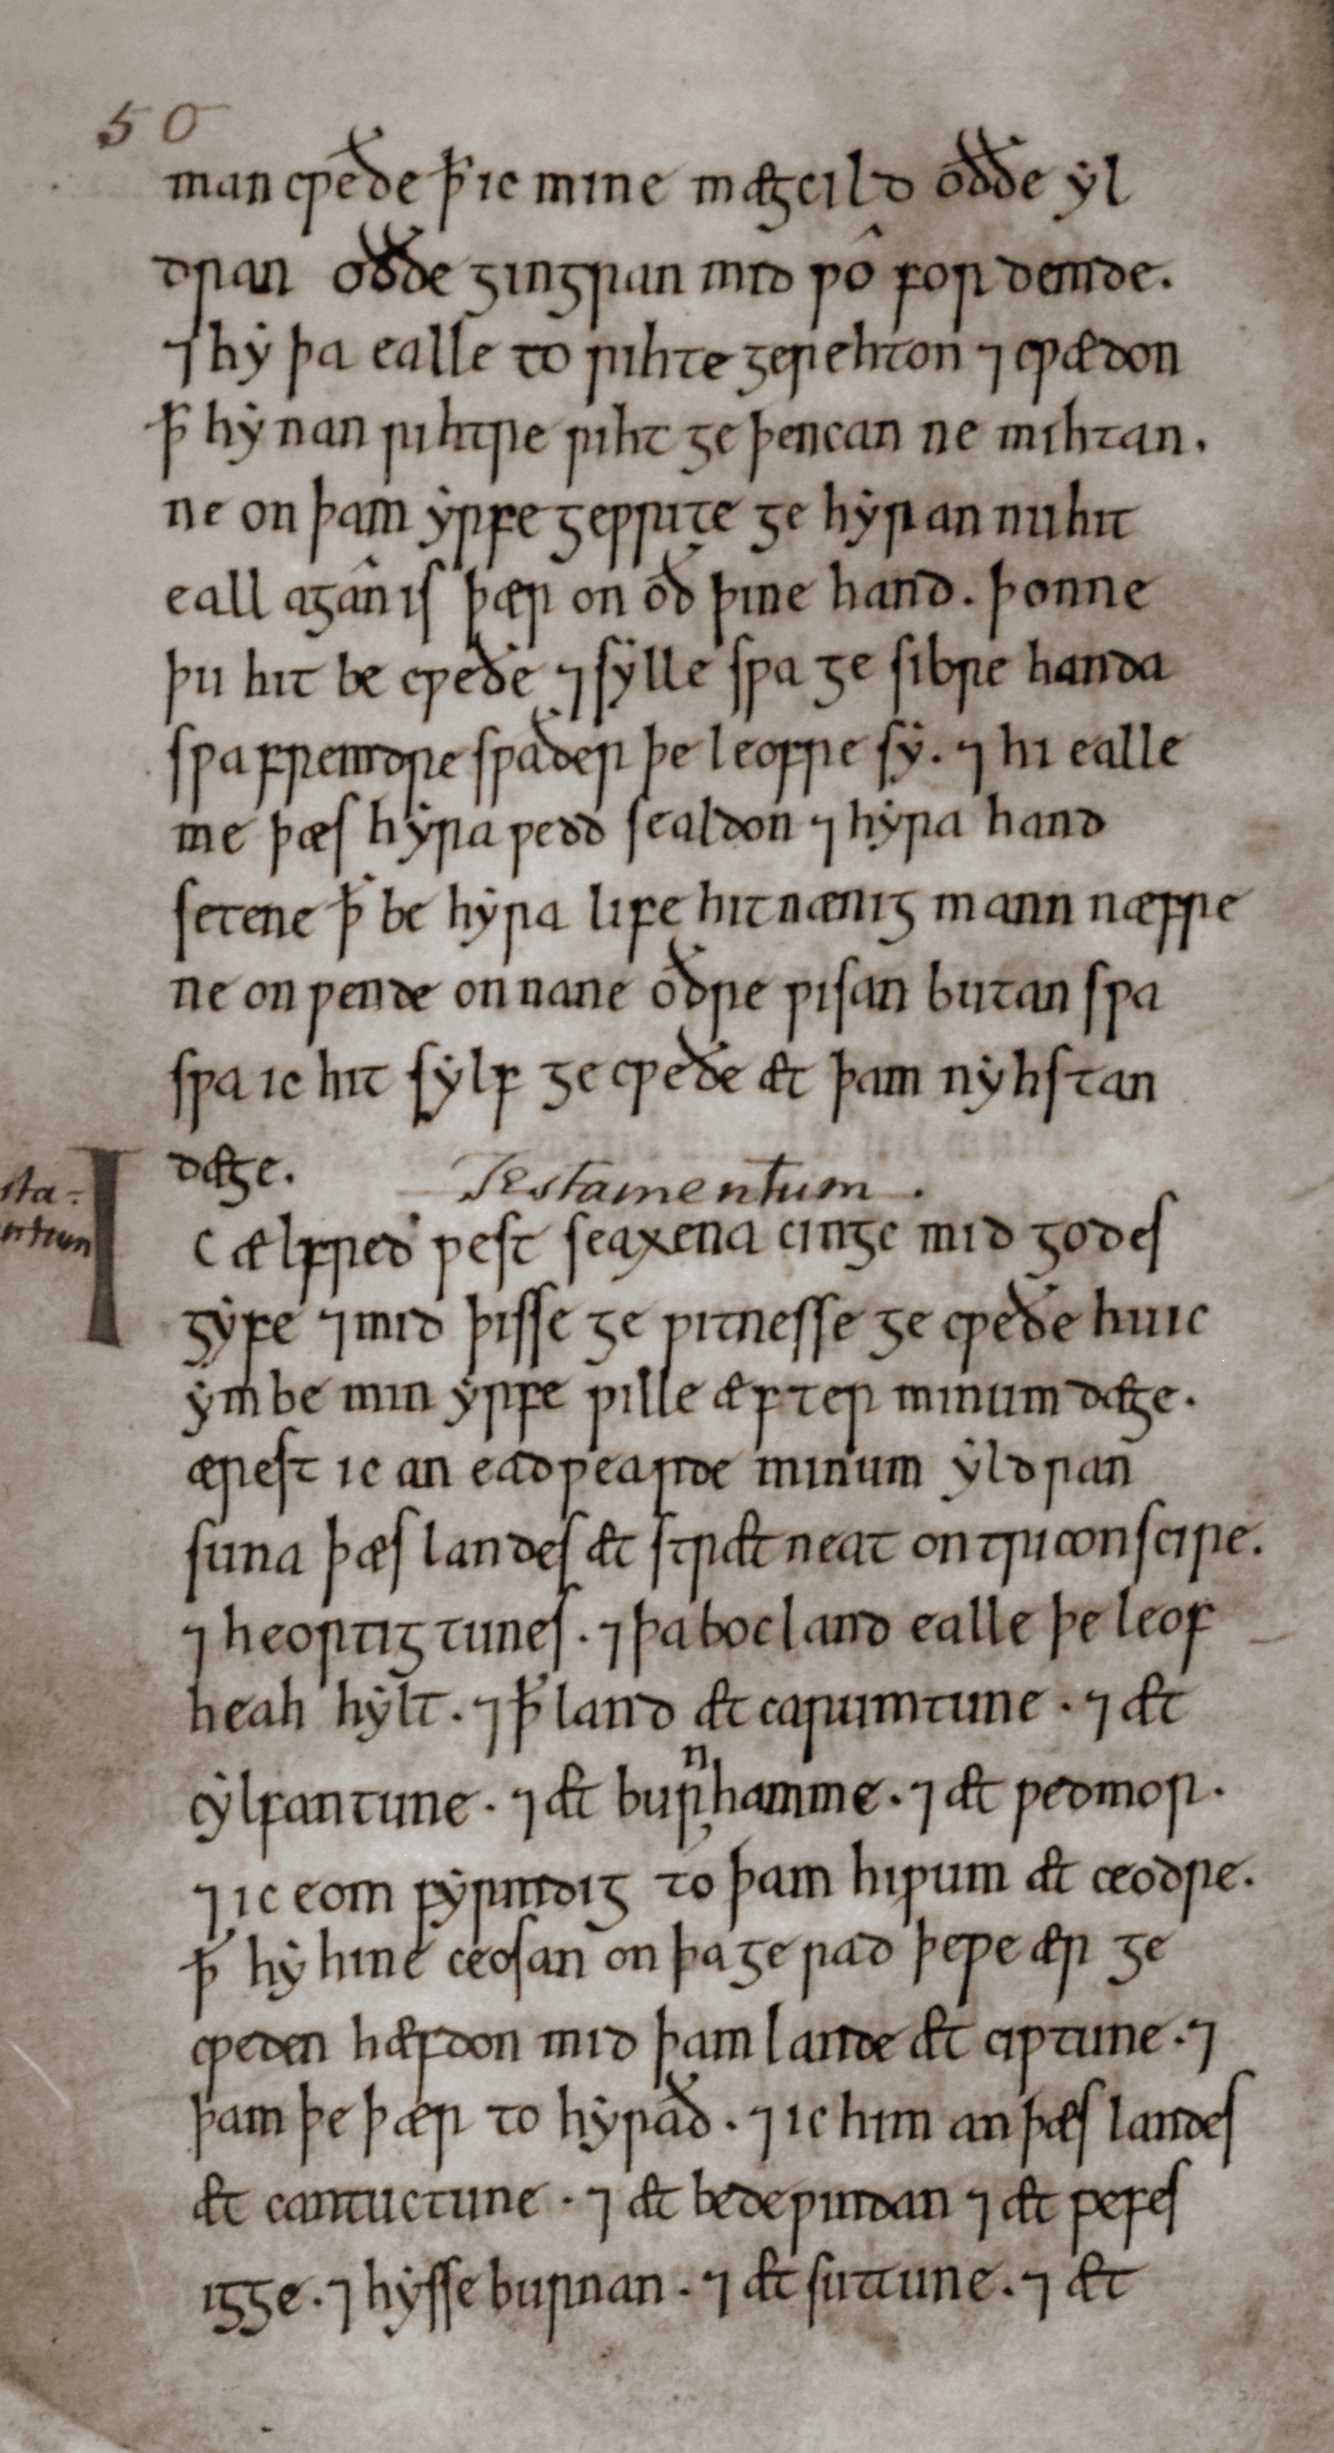 50
man cƿeðe ꝥ ic mine mægcild oððe ẏl
dran oððe gingran mid ƿô fordemde.
⁊ hẏ þa ealle to rihte gerehton ⁊ cƿædon
ꝥ hẏ nan rihtre riht ge þencan ne mihtan.
ne on þam ẏrfe geƿrite ge hẏran nu hit
eall agân is þær on oð þine hand. þonne
þu hit be cƿeðe ⁊ sẏlle sƿa ge sibre handa
sƿa fremdre sƿaðer þe leofre sẏ. ⁊ hi ealle
me þæs hẏra ƿedd sealdon ⁊ hẏra hand
setene ꝥ be hẏra life hit nænig mann næfre
ne on ƿende on nane oðre ƿisan butan sƿa
sƿa ic hit sẏlf ge cƿeðe æt þam nẏhstan
dæge. Testamentum.
sta-
entum
Ic ælfred ƿest seaxena cinge mid godes
gẏfe ⁊ mid þisse ge ƿitnesse ge cƿeðe hu ic
ẏmbe min ẏrfe ƿille æfter minum dæge.
ærest ic an eadƿearde minum ẏldran
suna þæs landes æt strætneat on triconscire.
⁊ heortigtunes. ⁊ þa bocland ealle þe leof
heah hẏlt. ⁊ ꝥ land æt carumtune. ⁊ æt
cẏlfantune. ⁊ æt burnhamme. ⁊ æt ƿedmor.
⁊ ic eom fẏrmdig to þam hiƿum æt ceodre.
ꝥ hẏ hine ceosan on þa ge rad þe ƿe ær ge
cƿeden hæfdon mid þam lande æt ciƿtune. ⁊
þam þe þær to hẏrað. ⁊ ic him an þæs landes
æt cantuctune. ⁊ æt bedeƿindan ⁊ æt pefes
igge. ⁊ hẏsseburnan. ⁊ æt suttune. ⁊ æt